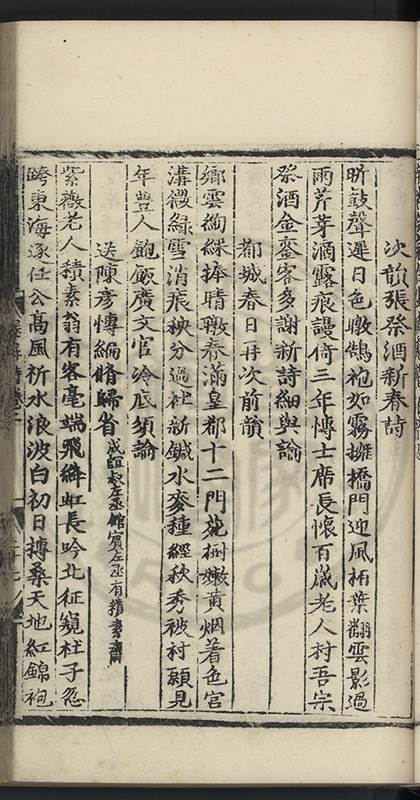 次韻張祭酒新春詩
昕鼓聲遲日色暾鵠袍如霧擁橋門迎風柘葉翻雲影過
雨芹芽滴露痕謾倚三年博士席長懷百歲老人村吾宗
祭酒金鑾客多謝新詩細與論
都城春日再次前韻
鄉雲絢綵捧晴暾春滿皇都十二門花樹嫩黃烟着色宮
溝微綠雪消痕秧分過社新鍼水麥種經秋秀被村願見
年豐人飽飯廣文官冷底須論
送陳彥博編脩歸省
紫薇老人積素翁有客毫端飛絳虹長吟北征窺柱子忽
跨東海逐任公高風祈水浪波白初日搏桑天地紅錦袍